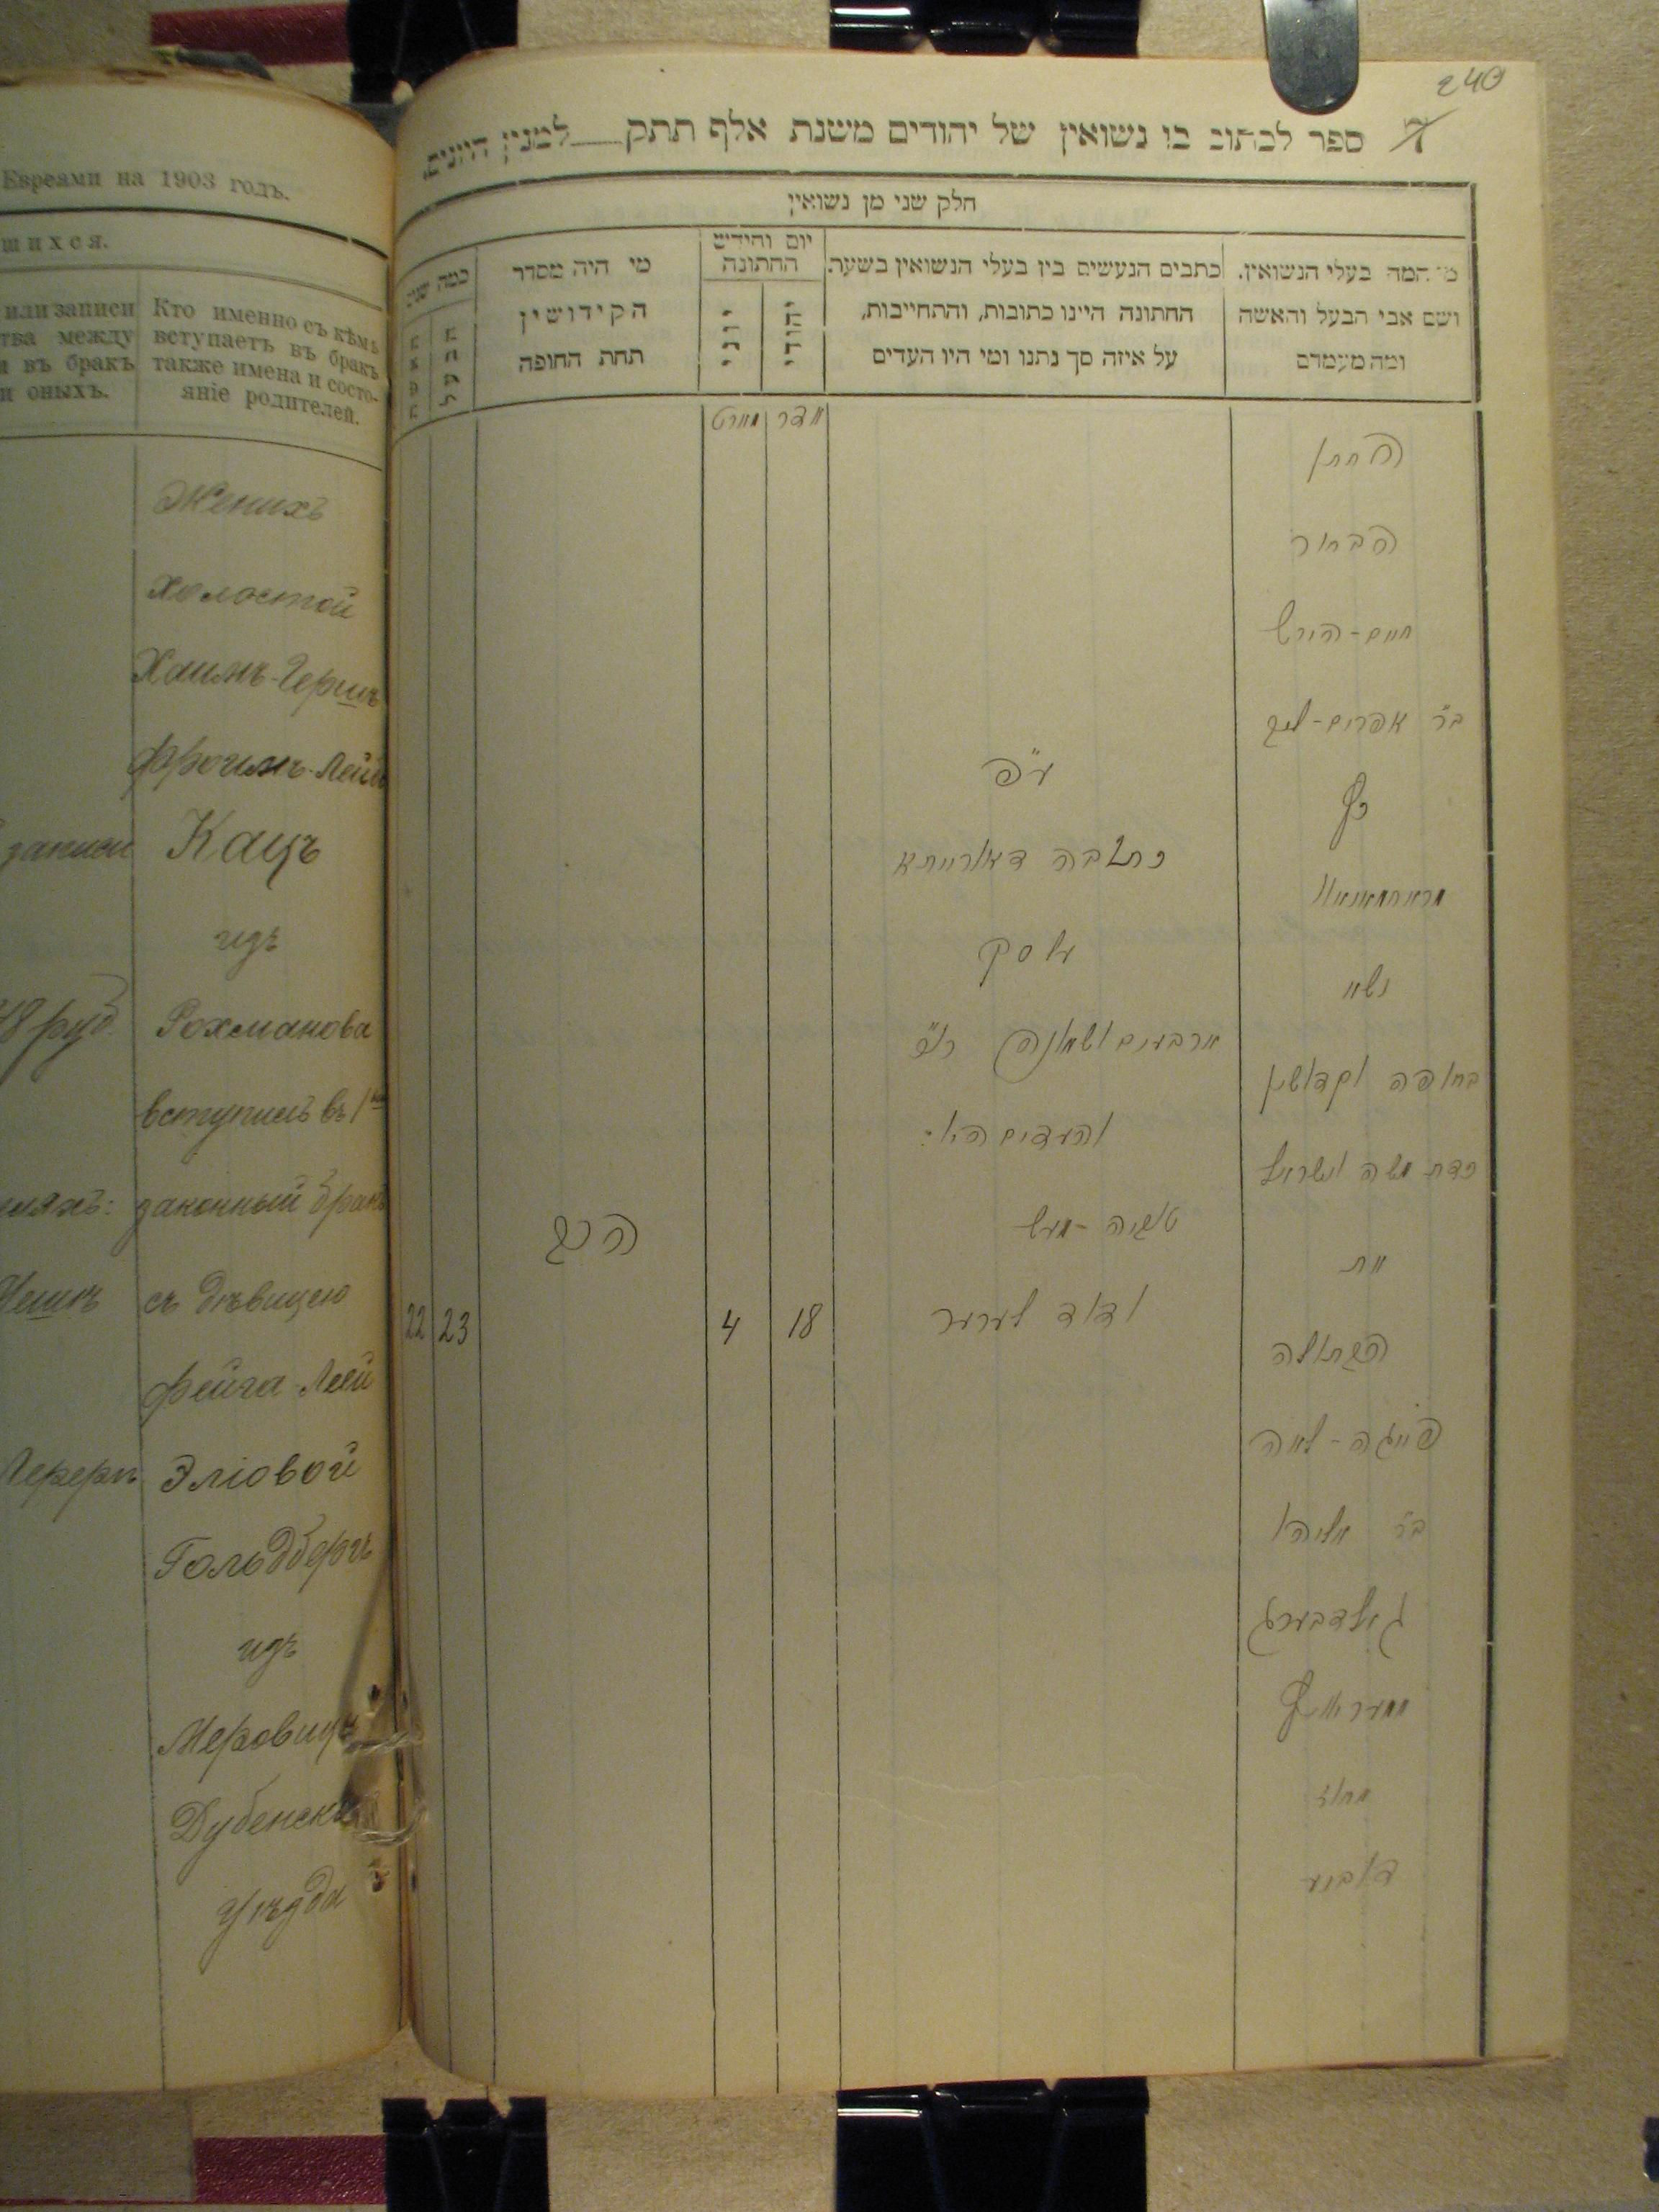 Евреами на 1903 годъ.
шихся.
или записи
тва между
и въ бракъ
и оныхъ.
Кто именно съ кѣмъ
вступаетъ въ бракъ
также имена и состо-
яніе родителей.
записи
48 руб.
Лереръ
Женихъ
холостой
Хаимъ-Гершъ
Фроимъ-Лейб
Кацъ
изъ
Рохманова
вступилъ въ 1
законный бракъ
съ дѣвицею
Фейга-Лей
Эліовой
Гольдбергъ
изъ
Меровицъ
Дубенск
уѣзда
240
ספר לכתוב בו נשואין של יהודים משנת אלף תתק למנין היונים
חלק שני מן נשואין
מי המה בעלי הנשואין.
ושם אבי הבעל והאשה
ומה מעמדם
כתבים הנעשים בין בעלי הנשואין בשעת
החתונה היינו כתובות, והתחייבות,
על איזה סך נתנו ומי היו העדים
יום והודש
החתונה
יהודי
יוני
מי היה מסדר
הקידושין
תחת החופה
כמה שנים
הבעל
האשה
החתן
הבחור
חיים-הירש
בר אפרים-ליב
כץ
מראחמאנאוו
נשא
בחופה וקדושין
כדת משה וישראל
את
הבתולה
פייגה-לאה
בר אליהו
גאלדבערג
ממעראוויץ
מחוז
דובנע
ע"פ
כתובה דאורייתא
עסק
ארבעים ושמונה רו"כ
והעדים היו:
טוביה-מעש
ודוד לערער
אדר
18
מארט
4
הרב
23
22